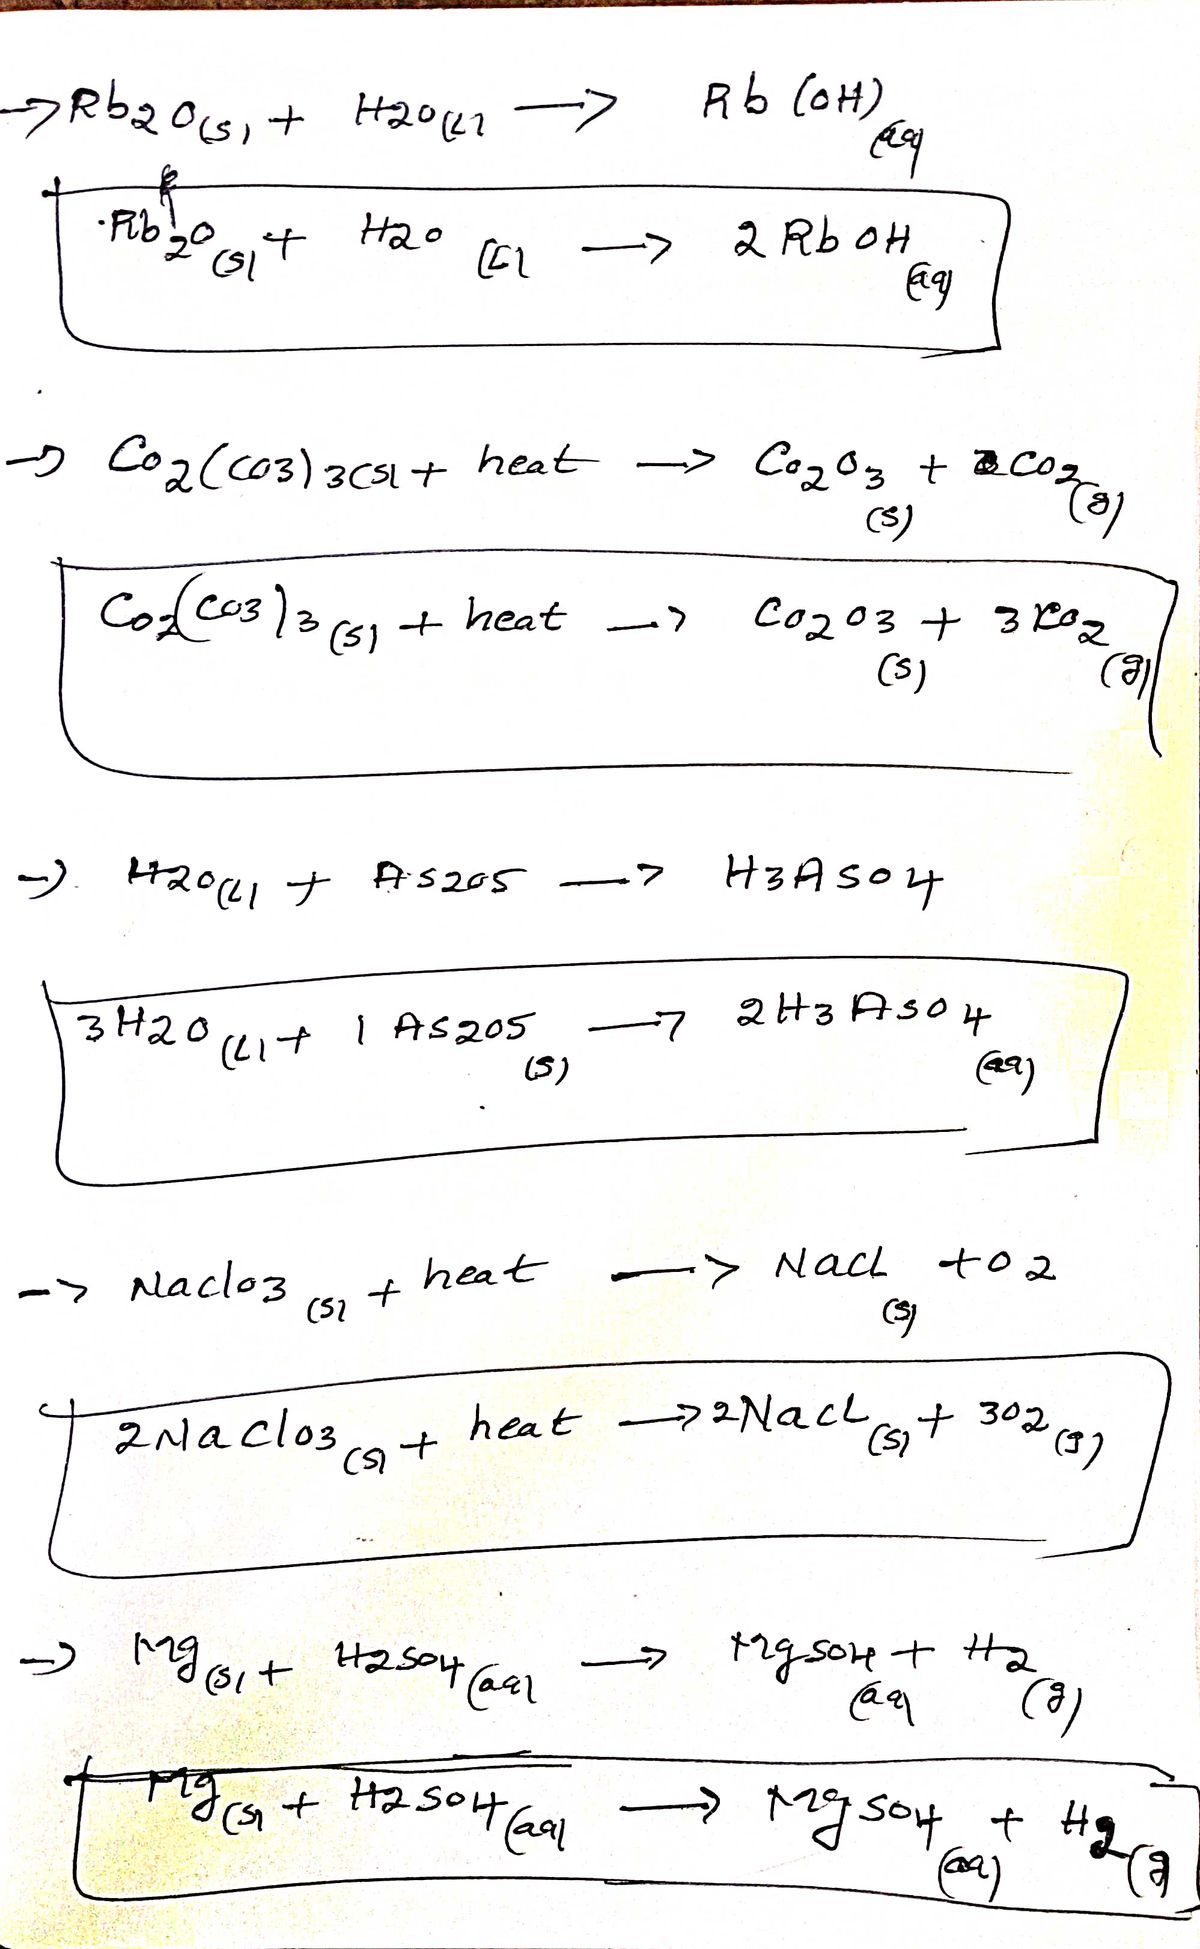 → Rb2O(s) + H2O(L) → Rb(OH)(aq)
Rb2O(s) + H2O(L) → 2RbOH(aq)
→ Co2(CO3)3(s) + heat → Co2O3(s) + CO2(g)
Co2(CO3)3(s) + heat → Co2O3(s) + 3CO2(g)
→ H2O(L) + AS2O5 → H3ASO4
3H2O(L) + 1 AS2O5(s) → 2H3ASO4(aq)
→ NaClO3(s) + heat → NaCl(s) + O2
2NaClO3(s) + heat → 2NaCl(s) + 3O2(g)
→ Mg(s) + H2SO4(aq) → MgSO4(aq) + H2(g)
Mg(s) + H2SO4(aq) → MgSO4(aq) + H2(g)